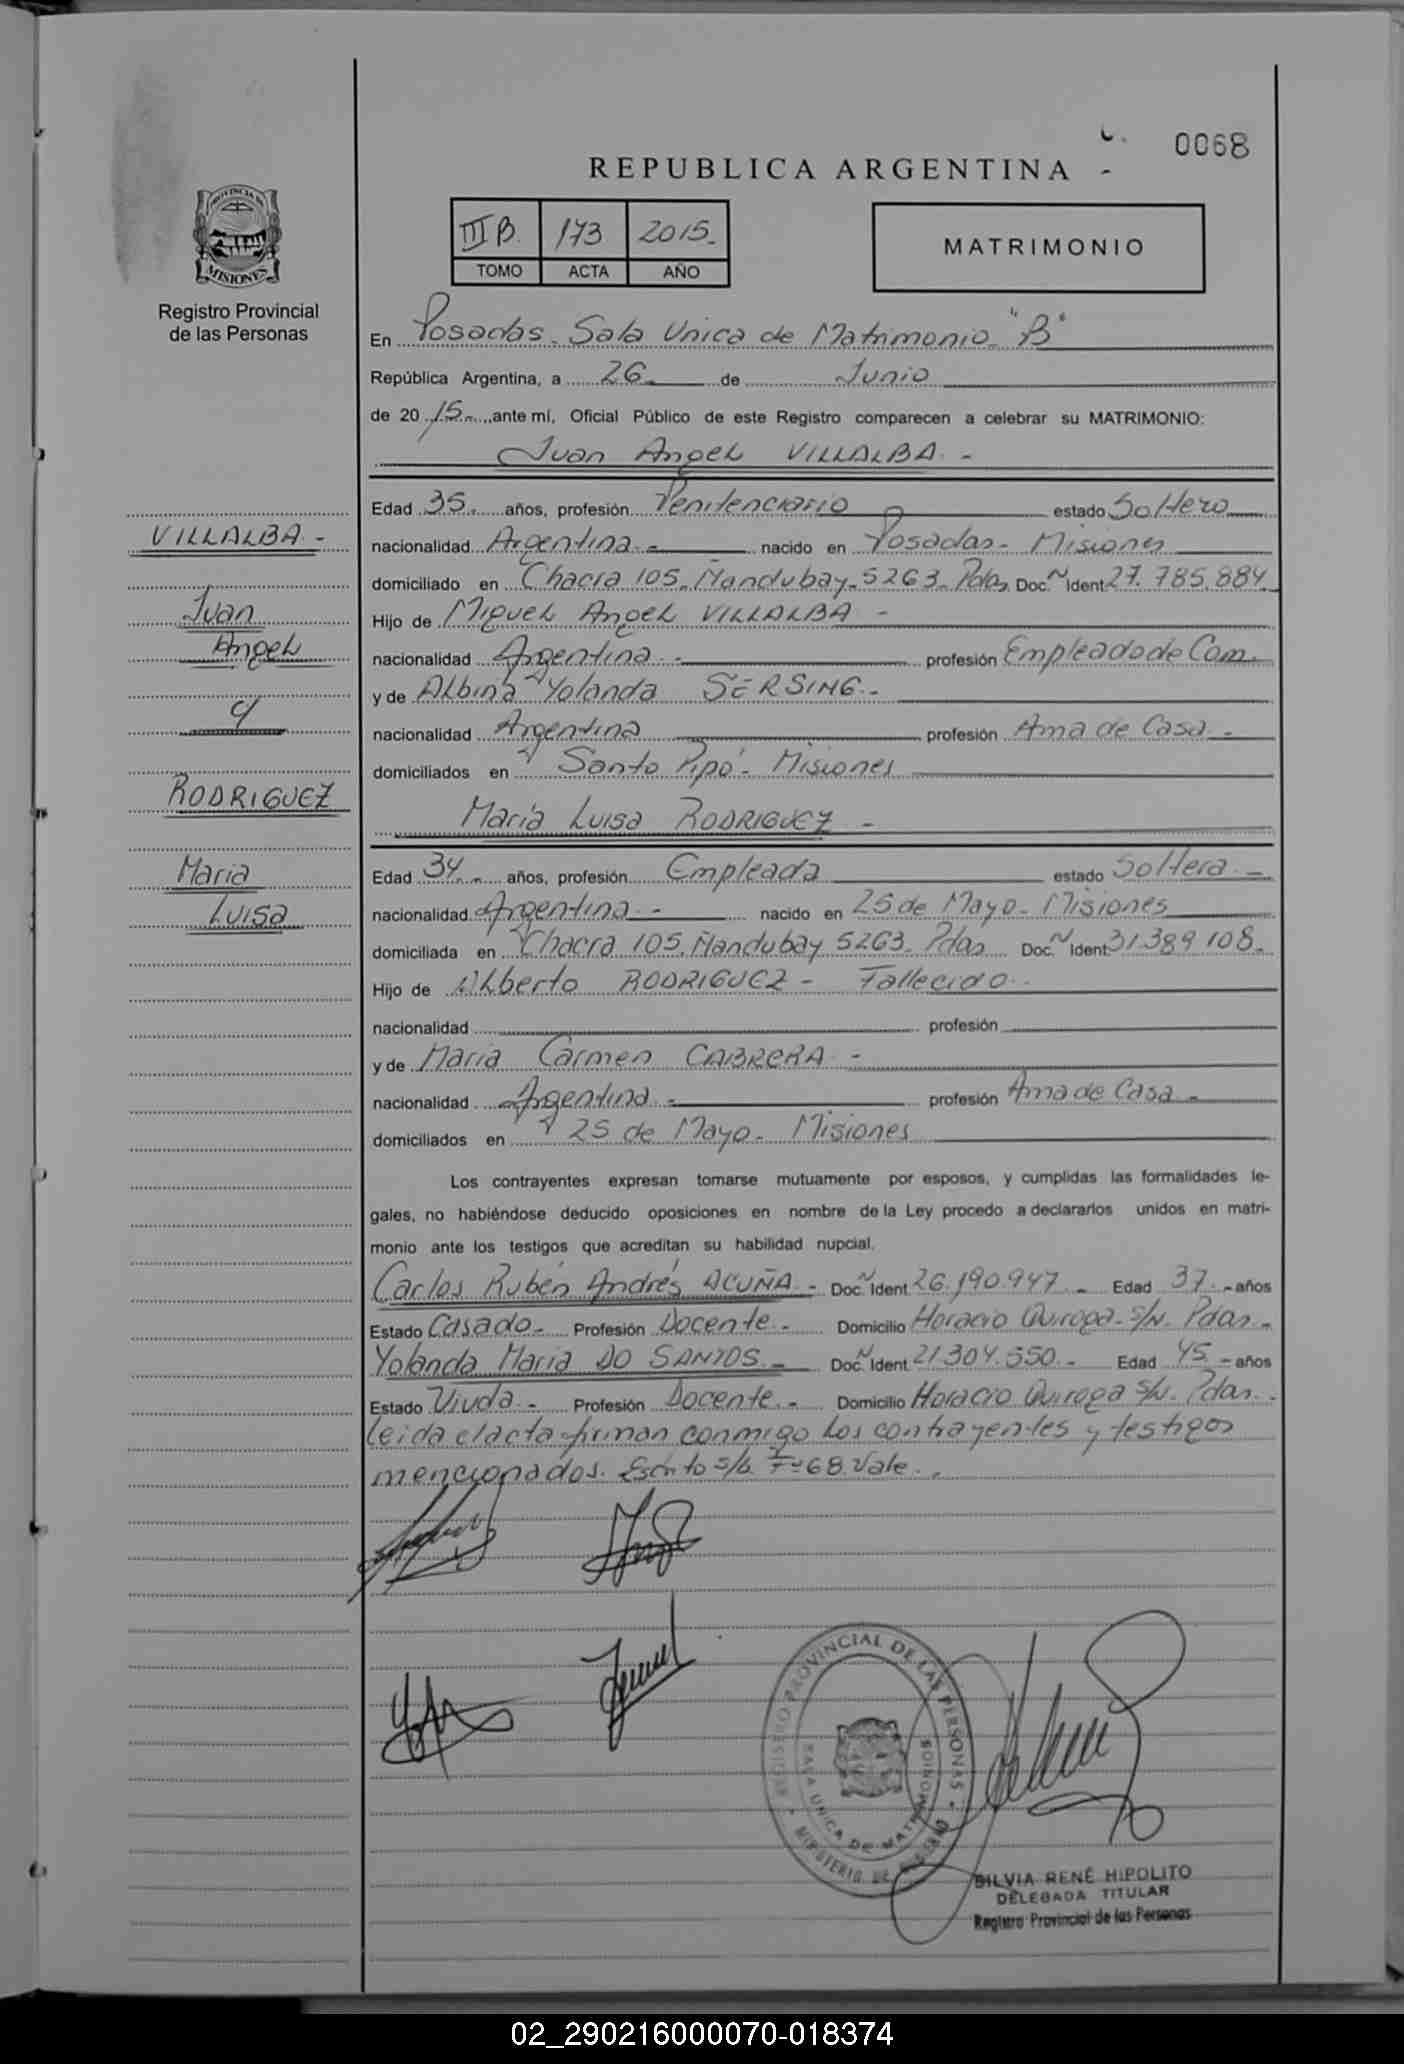 0068
REPUBLICA ARGENTINA -
PROVINCIA DE
MISIONES
Registro Provincial
de las Personas
III B. 173 2015.
TOMO ACTA AÑO
MATRIMONIO
En Posadas. Sala Unica de Matrimonio "B"
República Argentina, a 26 de Junio
de 20 15 ante mí, Oficial Público de este Registro comparecen a celebrar su MATRIMONIO:
Juan Angel VILLALBA. -
Edad 35. años, profesión Penitenciario estado Soltero
VILLALBA -
nacionalidad Argentina - nacido en Posadas - Misiones
domiciliado en Chacra 105. Ñandubay - 5263. Pdas. Doc. Ident 27.785.884
Juan
Hijo de Miguel Angel VILLALBA -
Angel
nacionalidad Argentina - profesión Empleado de Com.
y de Albina Yolanda SERSING. -
y
nacionalidad Argentina profesión Ama de Casa. -
domiciliados en Santo Pipó - Misiones
RODRIGUEZ
Maria Luisa RODRIGUEZ -
Maria
Edad 34. - años, profesión Empleada estado Soltera. -
Luisa
nacionalidad Argentina. - nacido en 25 de Mayo - Misiones
domiciliada en Chacra 105. Ñandubay 5263. Pdas Doc. Ident. 31.389.108.
Hijo de Alberto RODRIGUEZ - Fallecido.
nacionalidad profesión
y de Maria Carmen CABRERA -
nacionalidad Argentina. - profesión Ama de Casa. -
domiciliados en 25 de Mayo - Misiones
Los contrayentes expresan tomarse mutuamente por esposos, y cumplidas las formalidades le-
gales, no habiéndose deducido oposiciones en nombre de la Ley procedo a declararlos unidos en matri-
monio ante los testigos que acreditan su habilidad nupcial.
Carlos Rubén Andrés ACUÑA. - Doc. Ident 26.190.947 - Edad 37. - años
Estado Casado. - Profesión Docente. - Domicilio Horacio Quiroga - s/N. Pdas. -
Yolanda Maria DO SANTOS. - Doc. Ident 21.304.550. - Edad 45. - años
Estado Viuda. - Profesión Docente. - Domicilio Horacio Quiroga s/N. Pdas. -
Leida el acta firman conmigo los contrayentes y testigos
mencionados. Escrito s/b. Fº 68. Vale.
REGISTRO PROVINCIAL DE LAS PERSONAS
SALA UNICA DE MATRIMONIOS
MINISTERIO DE
SILVIA RENÉ HIPOLITO
DELEGADA TITULAR
Registro Provincial de las Personas
02_290216000070-018374